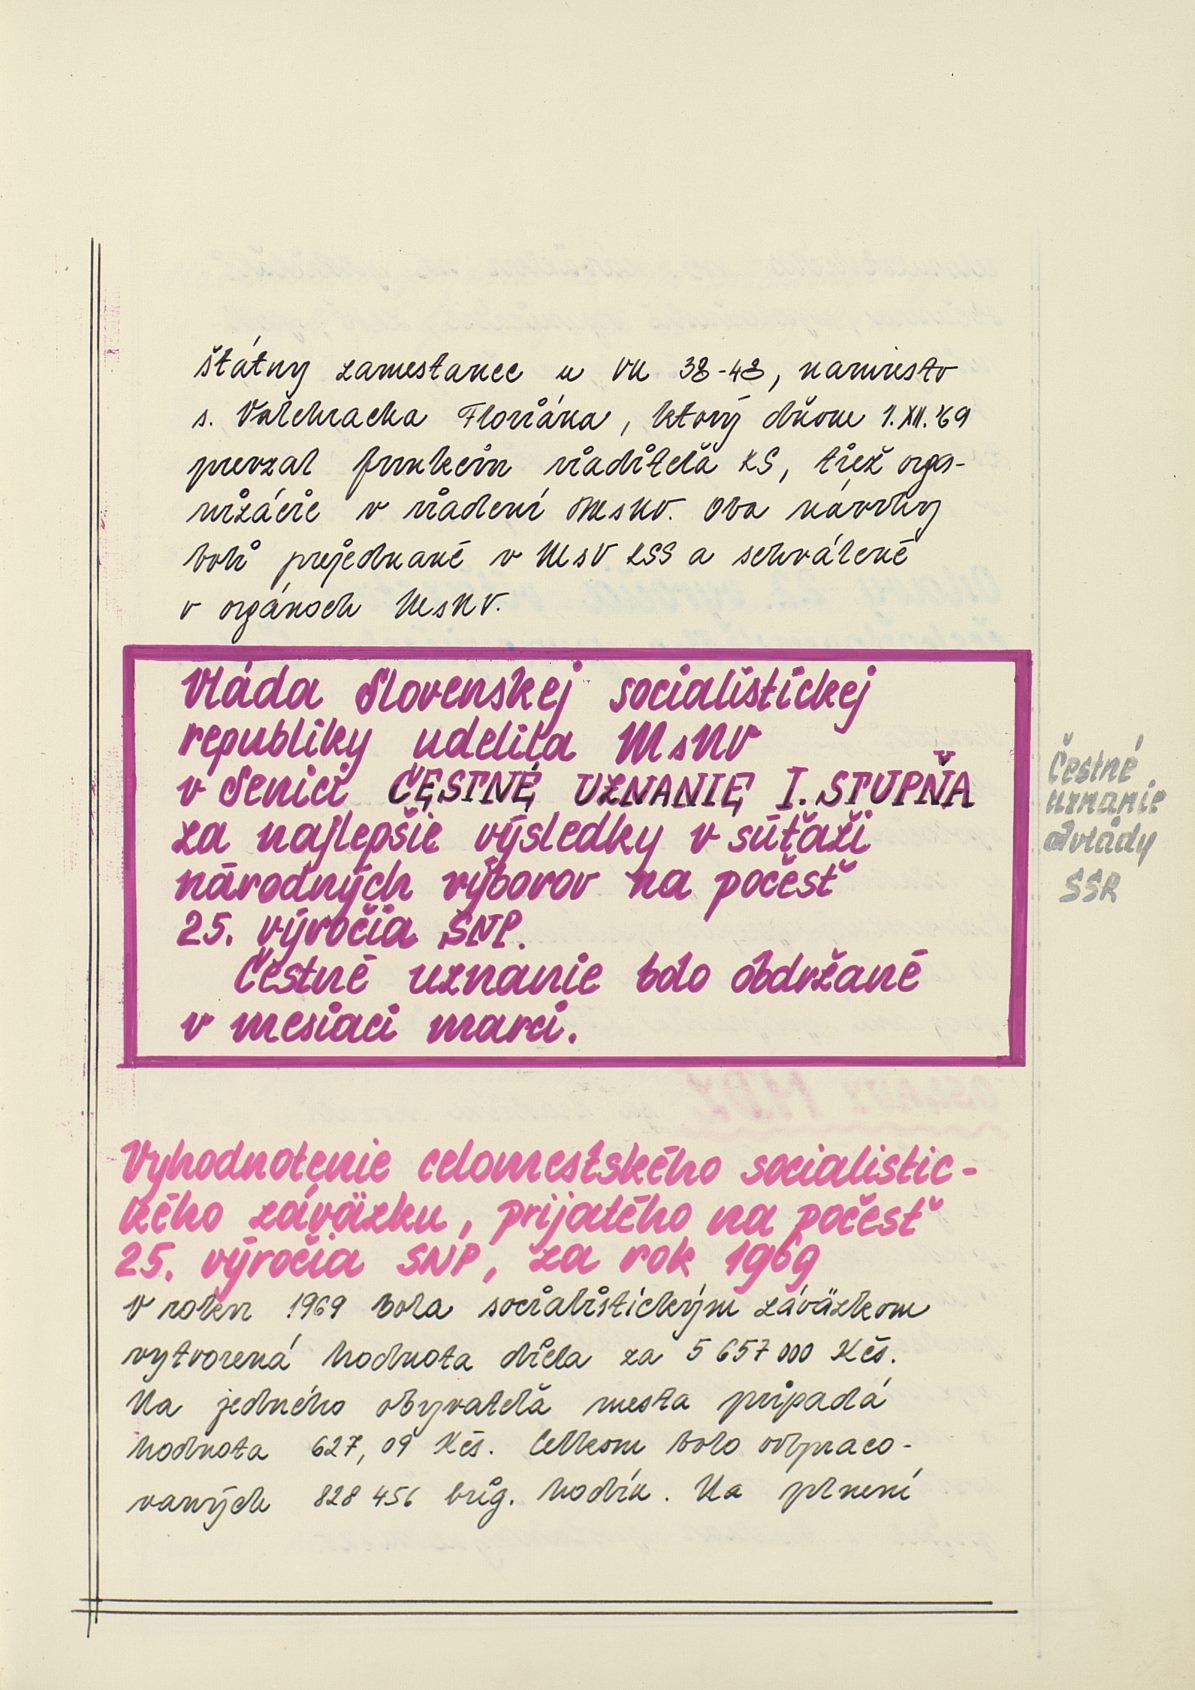 štátny zamestanec u VK 38-48, namiesto
s. Valchracha Floriána, ktorý dňom 1.XII.'69
prevzal funkciu riaditeľa KS, tiež orga-
nizácie v riadení MsNV. Oba návrhy
boli prejednané v MsV KSS a schválené
v orgánoch MsNV.
Vláda Slovenskej socialistickej
republiky udelila MsNV
v Senici ČESTNÉ UZNANIE I. STUPŇA
za najlepšie výsledky v súťaži
národných výborov na počesť
25. výročia SNP.
Čestné uznanie bolo obdržané
v mesiaci marci.
Čestné
uznanie
vlády
SSR
Vyhodnotenie celomestského socialistic-
kého záväzku, prijatého na počesť
25. výročia SNP, za rok 1969
V roku 1969 bola socialistickým záväzkom
vytvorená hodnota diela za 5 657 000 Kčs.
Na jedného obyvateľa mesta pripadá
hodnota 627,09 Kčs. Celkom bolo odpraco-
vaných 828 456 brig. hodín. Na plnení